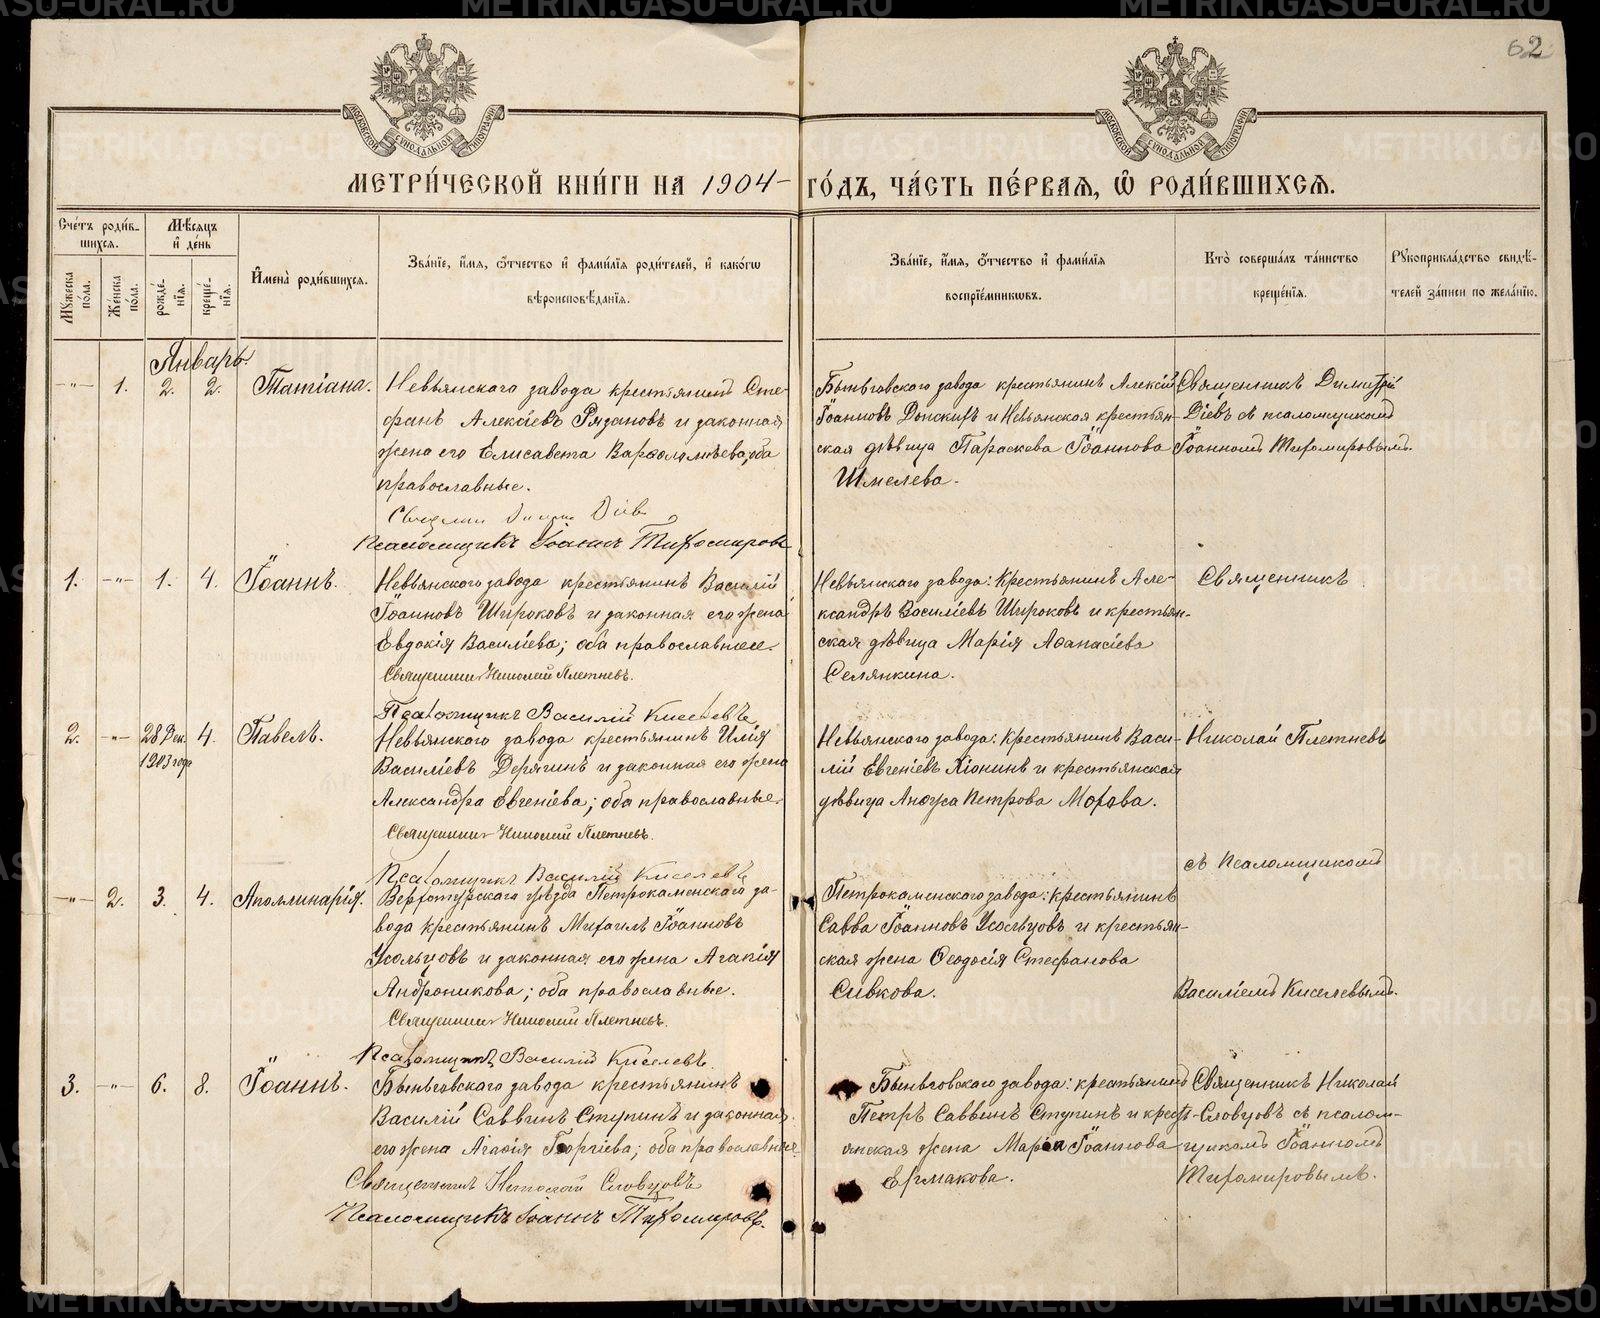 62
МОСКОВСКОЙ СѴНОДАЛЬНОЙ ТИПОГРАФІИ
МОСКОВСКОЙ СѴНОДАЛЬНОЙ ТИПОГРАФІИ
МЕТРИ́ЧЕСКОЙ КНИ́ГИ НА 1904 ГО́ДЪ, ЧА́СТЬ ПЕ́РВАЯ, Ѡ РОДИ́ВШИХСЯ.
Сче́тъ роди́в-
шихся.
Мꙋжеска по́ла.
Же́нска по́ла.
Мѣ́сяцъ
и де́нь
рожде́-
нія.
креще́-
нія.
Имена̀ роди́вшихся.
Зва́ніе, и́мя, о́тчество и фами́лія роди́телей, и како́гѡ
вѣроисповѣ́данія.
Зва́ніе, и́мя, о́тчество и фами́лія
воспріе́мникѡвъ.
Кто̀ соверша́лъ та́инство
креще́нія.
Рꙋкоприкла́дство свидѣ́-
телей за́писи по жела́нію.
Январь.
-"- 1. 2. 2. Татіана.
Невьянского завода крестьянинъ Сте-
фанъ Алексіевъ Рязановъ и законная
жена его Елисавета Варѳоломѣева, оба
православные.
Діевъ
Псаломщикъ Іоаннъ Тихомировъ
Быньговского завода крестьянинъ Алексій
Іоанновъ Донскихъ и Невьянская крестьян-
ская дѣвица Параскева Іоаннова
Шмелева.
Священникъ Димитрій
Діевъ съ псаломщикомъ
Іоанномъ Тихомировымъ.
1. -"- 1. 4. Іоаннъ.
Невьянского завода крестьянинъ Василій
Іоанновъ Широковъ и законная его жена
Евдокія Василіева; оба православные.
Священникъ Николай Плетневъ.
Псаломщикъ Василій Киселевъ
Невьянского завода: крестьянинъ Але-
ксандръ Василіевъ Широковъ и крестьян-
ская дѣвица Марія Аѳанасіева
Селянкина.
Священникъ
2. -"- 28 Дек. 1903 года 4. Павелъ.
Невьянского завода крестьянинъ Илія
Василіевъ Дерягинъ и законная его жена
Александра Евгеніева; оба православные.
Священникъ Николай Плетневъ.
Псаломщикъ Василій Киселевъ
Невьянского завода: крестьянинъ Васи-
лій Евгеніевъ Хіонинъ и крестьянская
дѣвица Анѳуса Петрова Мохова.
Николай Плетневъ
съ псаломщикомъ
-"- 2. 3. 4. Аполлинарія.
Верхотурского уѣзда Петрокаменского за-
вода крестьянинъ Михаилъ Іоанновъ
Усольцовъ и законная его жена Агапія
Андроникова; оба православные.
Священникъ Николай Плетневъ.
Псаломщикъ Василій Киселевъ.
Петрокаменского завода: крестьянинъ
Савва Іоанновъ Усольцовъ и крестьян-
ская жена Ѳеодосія Стефанова
Сивкова.
Василіемъ Киселевымъ.
3. -"- 6. 8. Іоаннъ.
Быньговского завода крестьянинъ
Василій Саввинъ Ступинъ и законная
его жена Агаѳія Георгіева; оба православные
Священникъ Николай Словцовъ
Псаломщикъ Іоаннъ Тихомировъ.
Быньговского завода: крестьянинъ
Петръ Саввинъ Ступинъ и крестья-
янская жена Марія Іоаннова
Ермакова.
Священникъ Николай
Словцовъ съ псалом-
щикомъ Іоанномъ
Тихомировымъ.
METRIKI.GASO-URAL.RU